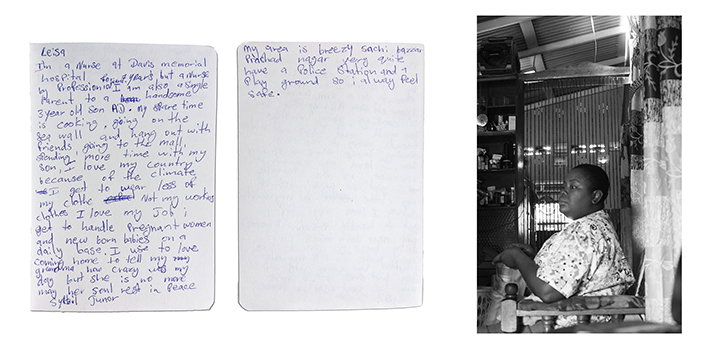 Leisa
I'm a Nurse at Davis memorial
hospital years but a Nurse
by Profession I am also a single
Parent to a handsome
3 year old son AD. my spare time
is cooking, going on the
sea wall and hang out with
friends, going to the mall,
spending more time with my
son, I love my country
because of the climate
I get to wear less of
my clothe Not my workes
clothes I love my Job i
get to handle Pregnant women
and new born babies on a
daily base. I use to love
coming home to tell my
grandma how crazy was my
day but she is no more
may her soul rest in Peace
Sybil Junor
My area is breezy sachi bazaar
Prashad nagar very quite
have a Police Station and a
Play ground so i alway feel
safe.